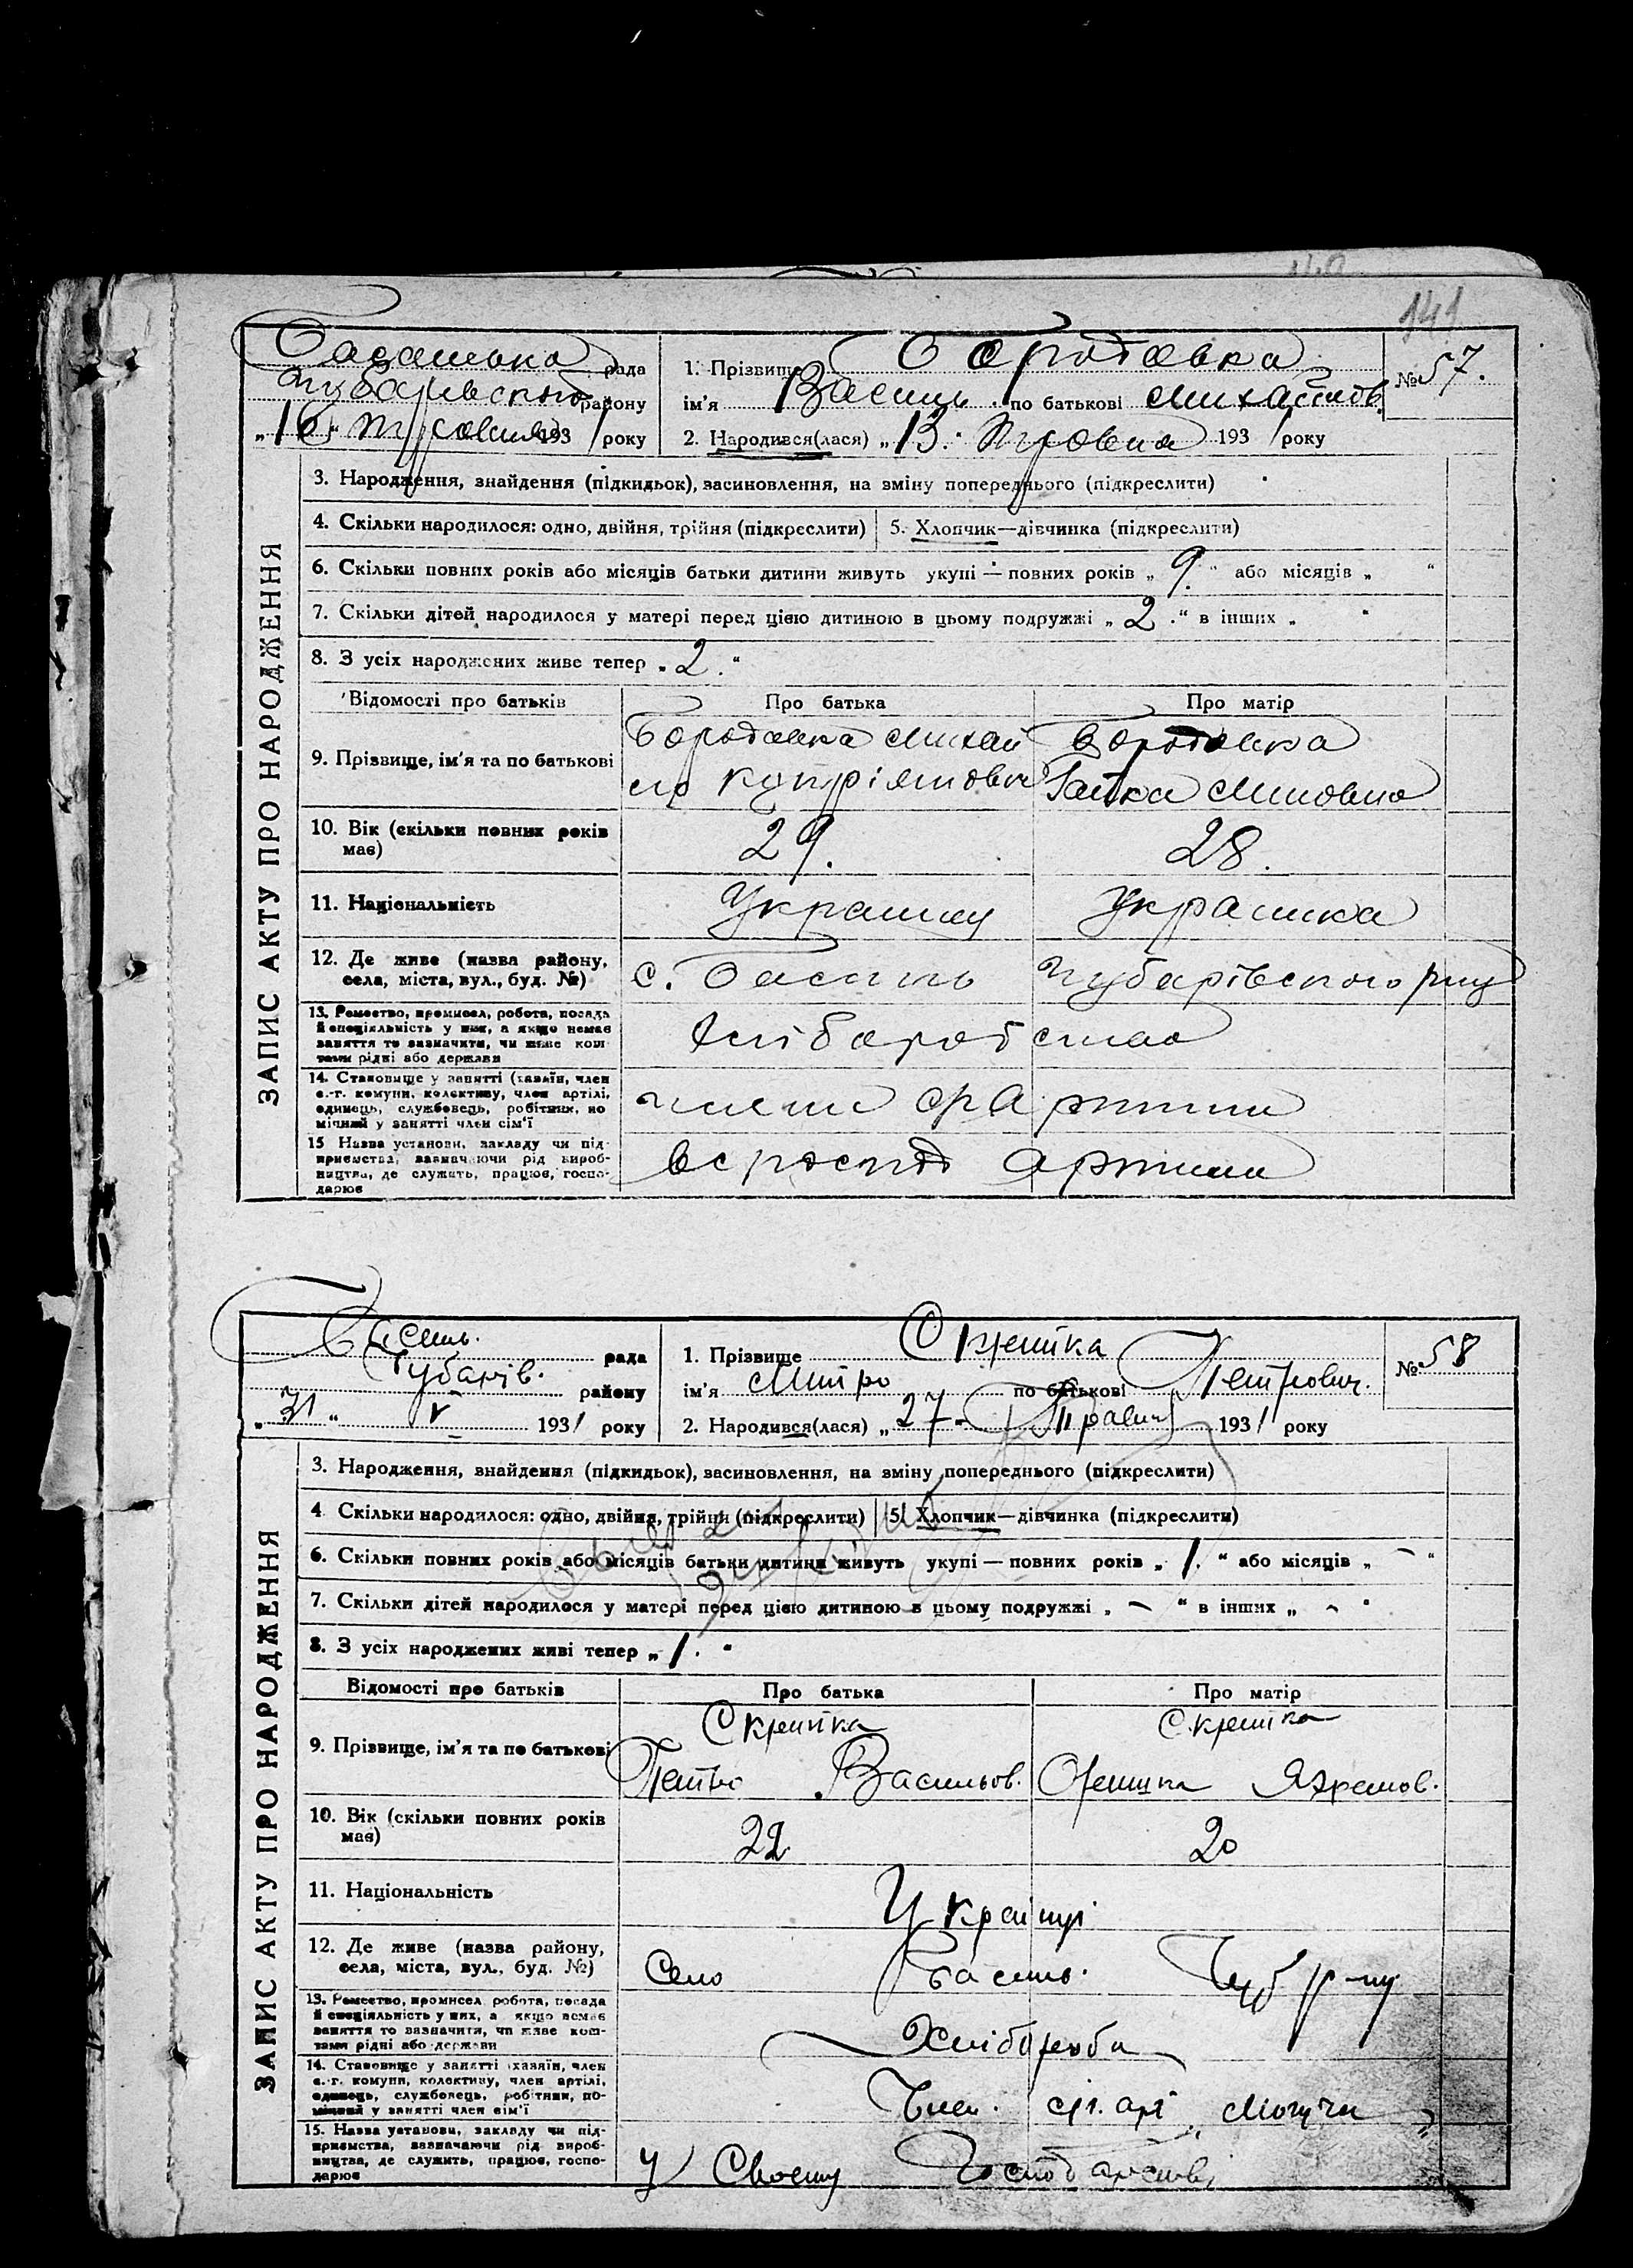 141
рада
1. Прізвище Бородавка
№ 57.
Чубарівського району
ім'я Василь по батькові Михайлов.
„16“ Травня 1931 року
2. Народився(лася) „13. Травня 1931 року
ЗАПИС АКТУ ПРО НАРОДЖЕННЯ
3. Народження, знайдення (підкидьок), засиновлення, на зміну попереднього (підкреслити)
4. Скільки народилося: одно, двійня, трійня (підкреслити)
5. Хлопчик—дівчинка (підкреслити)
6. Скільки повних років або місяців батьки дитини живуть укупі — повних років „ 9. “ або місяців „ “
7. Скільки дітей народилося у матері перед цією дитиною в цьому подружжі „ 2 .“ в інших „ “
8. З усіх народжених живе тепер „ 2 . “
Відомості про батьків
Про батька
Про матір
9. Прізвище, ім'я та по батькові
Бородавка Михай
ло Купріянович
Бородавка
Ганка Миновна
10. Вік (скільки повних років
має)
29.
28.
11. Національність
Украинец
Украинка
12. Де живе (назва району,
села, міста, вул., буд. №)
с. Басань
Чубарівського р-ну
13. Ремество, промисел, робота, посада
й спеціяльність у них, а якщо немає
заняття то зазначити, чи живе кош
тами рідні або держави
14. Становище у занятті (хазяїн, член
с.-г. комуни, колективу, член артілі,
одинець, службовець, робітник, по
мічний у занятті член сім'ї
член артили
15 Назва установи, закладу чи під-
приємства, зазначаючи рід вироб-
ництва, де служить, працює, госпо-
дарює
артили
Басань. рада
1. Прізвище Скрипка
№ 58
Чубарів. району
ім'я Митро по батькові Петрович.
„ 31 “ V 1931 року
2. Народився(лася) „ 27 - Травня 1931 року
ЗАПИС АКТУ ПРО НАРОДЖЕННЯ
3. Народження, знайдення (підкидьок), засиновлення, на зміну попереднього (підкреслити)
4 Скільки народилося: одно, двійня, трійня (підкреслити)
5. Хлопчик—дівчинка (підкреслити)
6. Скільки повних років або місяців батьки дитини живуть укупі — повних років „ 1. “ або місяців „ — “
7. Скільки дітей народилося у матері перед цією дитиною в цьому подружжі „ — “ в інших „ — “
8. З усіх народжених живі тепер „ 1 . “
Відомості про батьків
Про батька
Про матір
9. Прізвище, ім'я та по батькові
Скрипка
Петро Васильов.
Скрипка
Оришка
10. Вік (скільки повних років
має)
22
20
11. Національність
Українці
12. Де живе (назва району,
села, міста, вул., буд. №)
Село Басань. Чуб р-ну
13. Ремество, промисел робота, посада
й спеціяльність у них, а якщо немає
заняття то зазначити, чи живе кош-
тами рідні або держави
Хлібороби
14. Становище у занятті хазяїн, член
с.-г. комуни, колективу, член артілі,
одинець, службовець, робітник, по-
мічний у занятті член сім'ї
Член. с.г. арт
15. Назва установи, закладу чи під-
приємства, зазначаючи рід вироб-
ництва, де служить, працює, госпо-
дарює
У Своєму Господарстві